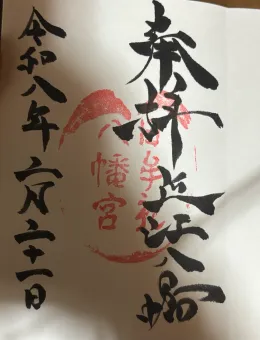 奉拝 近江八幡
八幡宮
令和八年二月二十一日